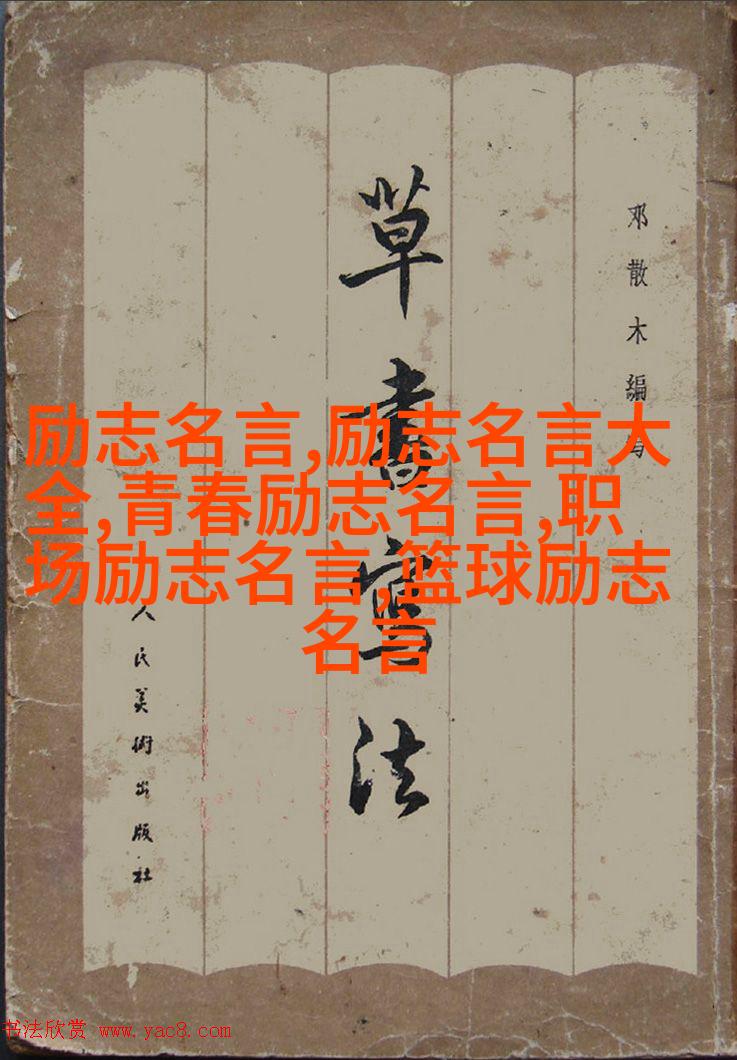 邓散木編
草書寫法
励志名言,励志名言大
全,青春励志名言,职
场励志名言,篮球励志
名言
人民美術出版社
书法欣赏 www.yac8.com